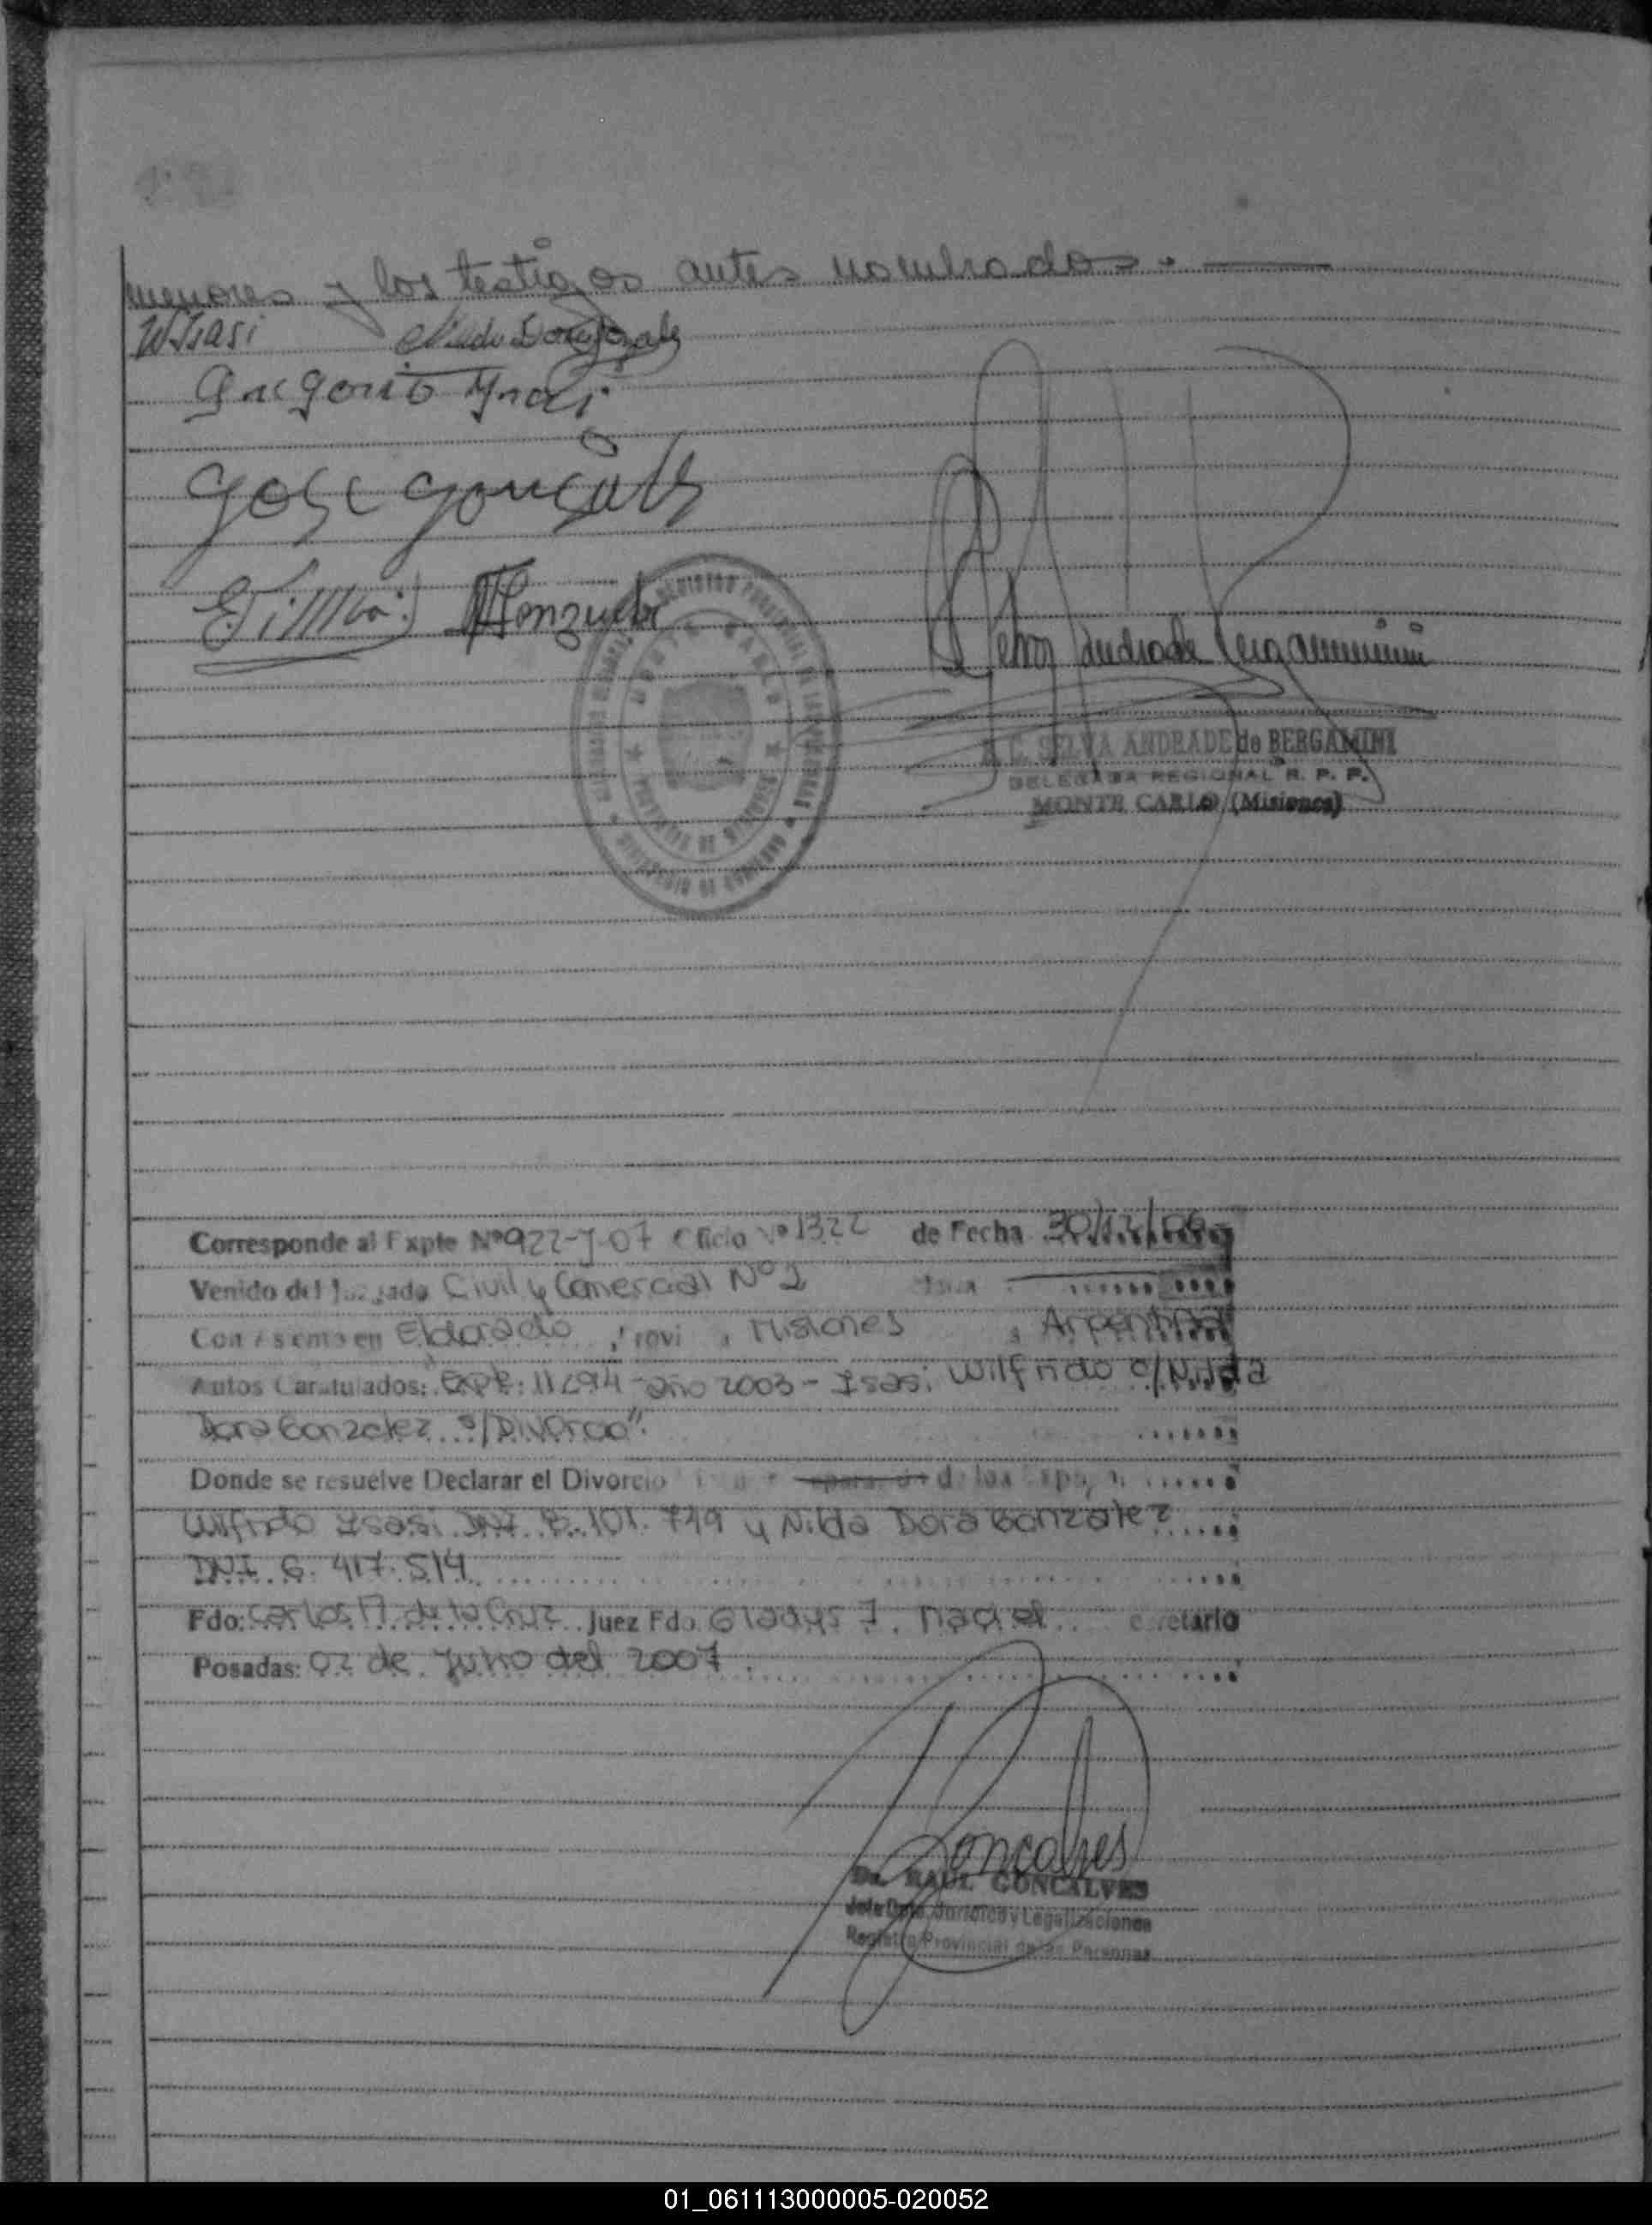 menores y los testigos antes nombrados.
WIsasi Nilda Dora Gonzalez
Gregorio Ysasi
Jose Gonçalves
Selva Andrade Bergamini
SELVA ANDRADE de BERGAMINI
DELEGADA REGIONAL R. P. P.
MONTE CARLO (Misiones)
REGISTRO PROVINCIAL DE LAS PERSONAS
MONTE CARLO
PROVINCIA DE MISIONES
MINISTERIO DE GOBIERNO
Corresponde al Expte Nº 922-J-07 Oficio Nº 1322 de Fecha 30/12/06
Venido del Juzgado Civil y Comercial Nº 1
Con Asento en Eldorado, Provi Misiones, Argentina
Autos Caratulados: Expte: 11294 año 2003 - Isasi Wilfrido c/Nilda
Dora Gonzalez s/Divorcio".
Donde se resuelve Declarar el Divorcio de los
Wilfrido Isasi DNI 8.101.749 y Nilda Dora Gonzalez
DNI 6.417.514
Fdo: Carlos M. de la Cruz Juez Fdo. Gladys J. Maciel Secretario
Posadas: 02 de Julio del 2007.
Goncalves
Dr. RAUL GONCALVES
Jefe Dpto. Jurídico y Legalizaciones
Registro Provincial de las Personas
01_061113000005-020052